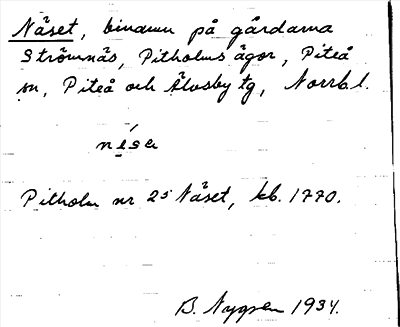 Näset, binamn på gårdarna
Strömnäs, Pitholms ägor, Piteå
sn, Piteå och Älvsby tg, Norrb. l.
nésa
Pitholm nr 25 Näset, kb. 1770.
B. Nygren 1934.